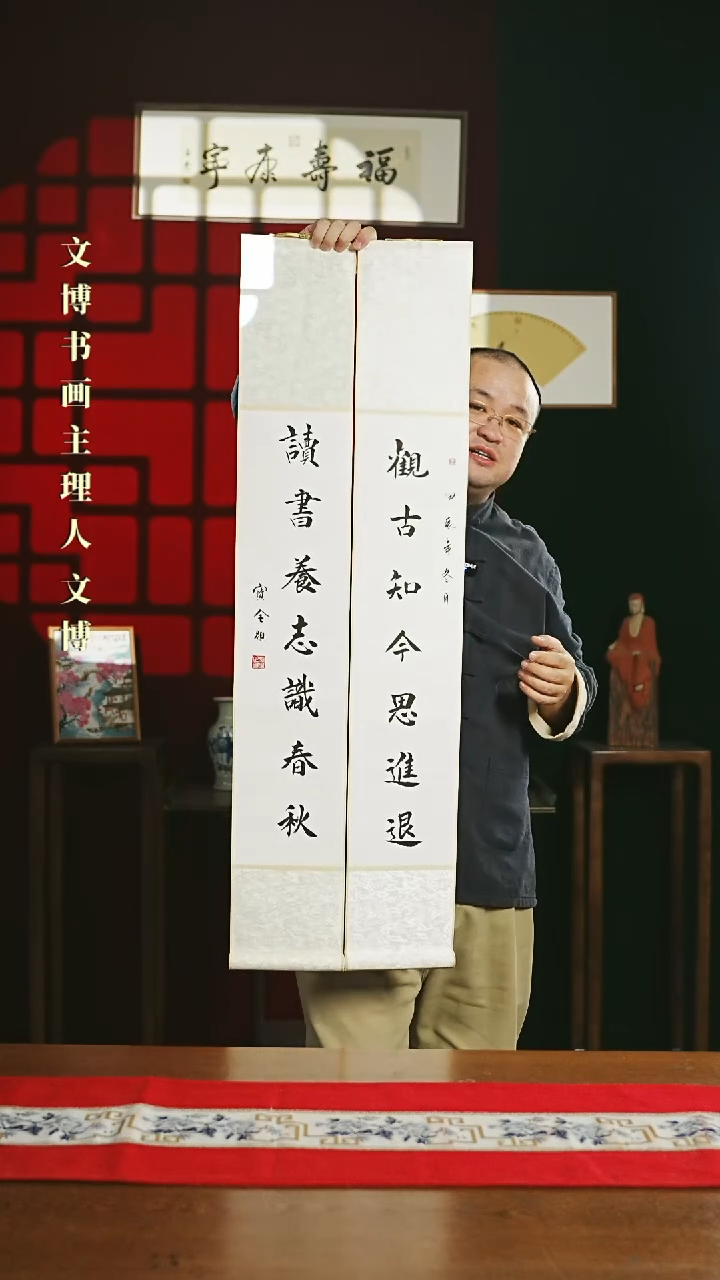 福壽康寧
文博书画主理人 文博
觀古知今思進退
甲辰年冬月
讀書養志識春秋